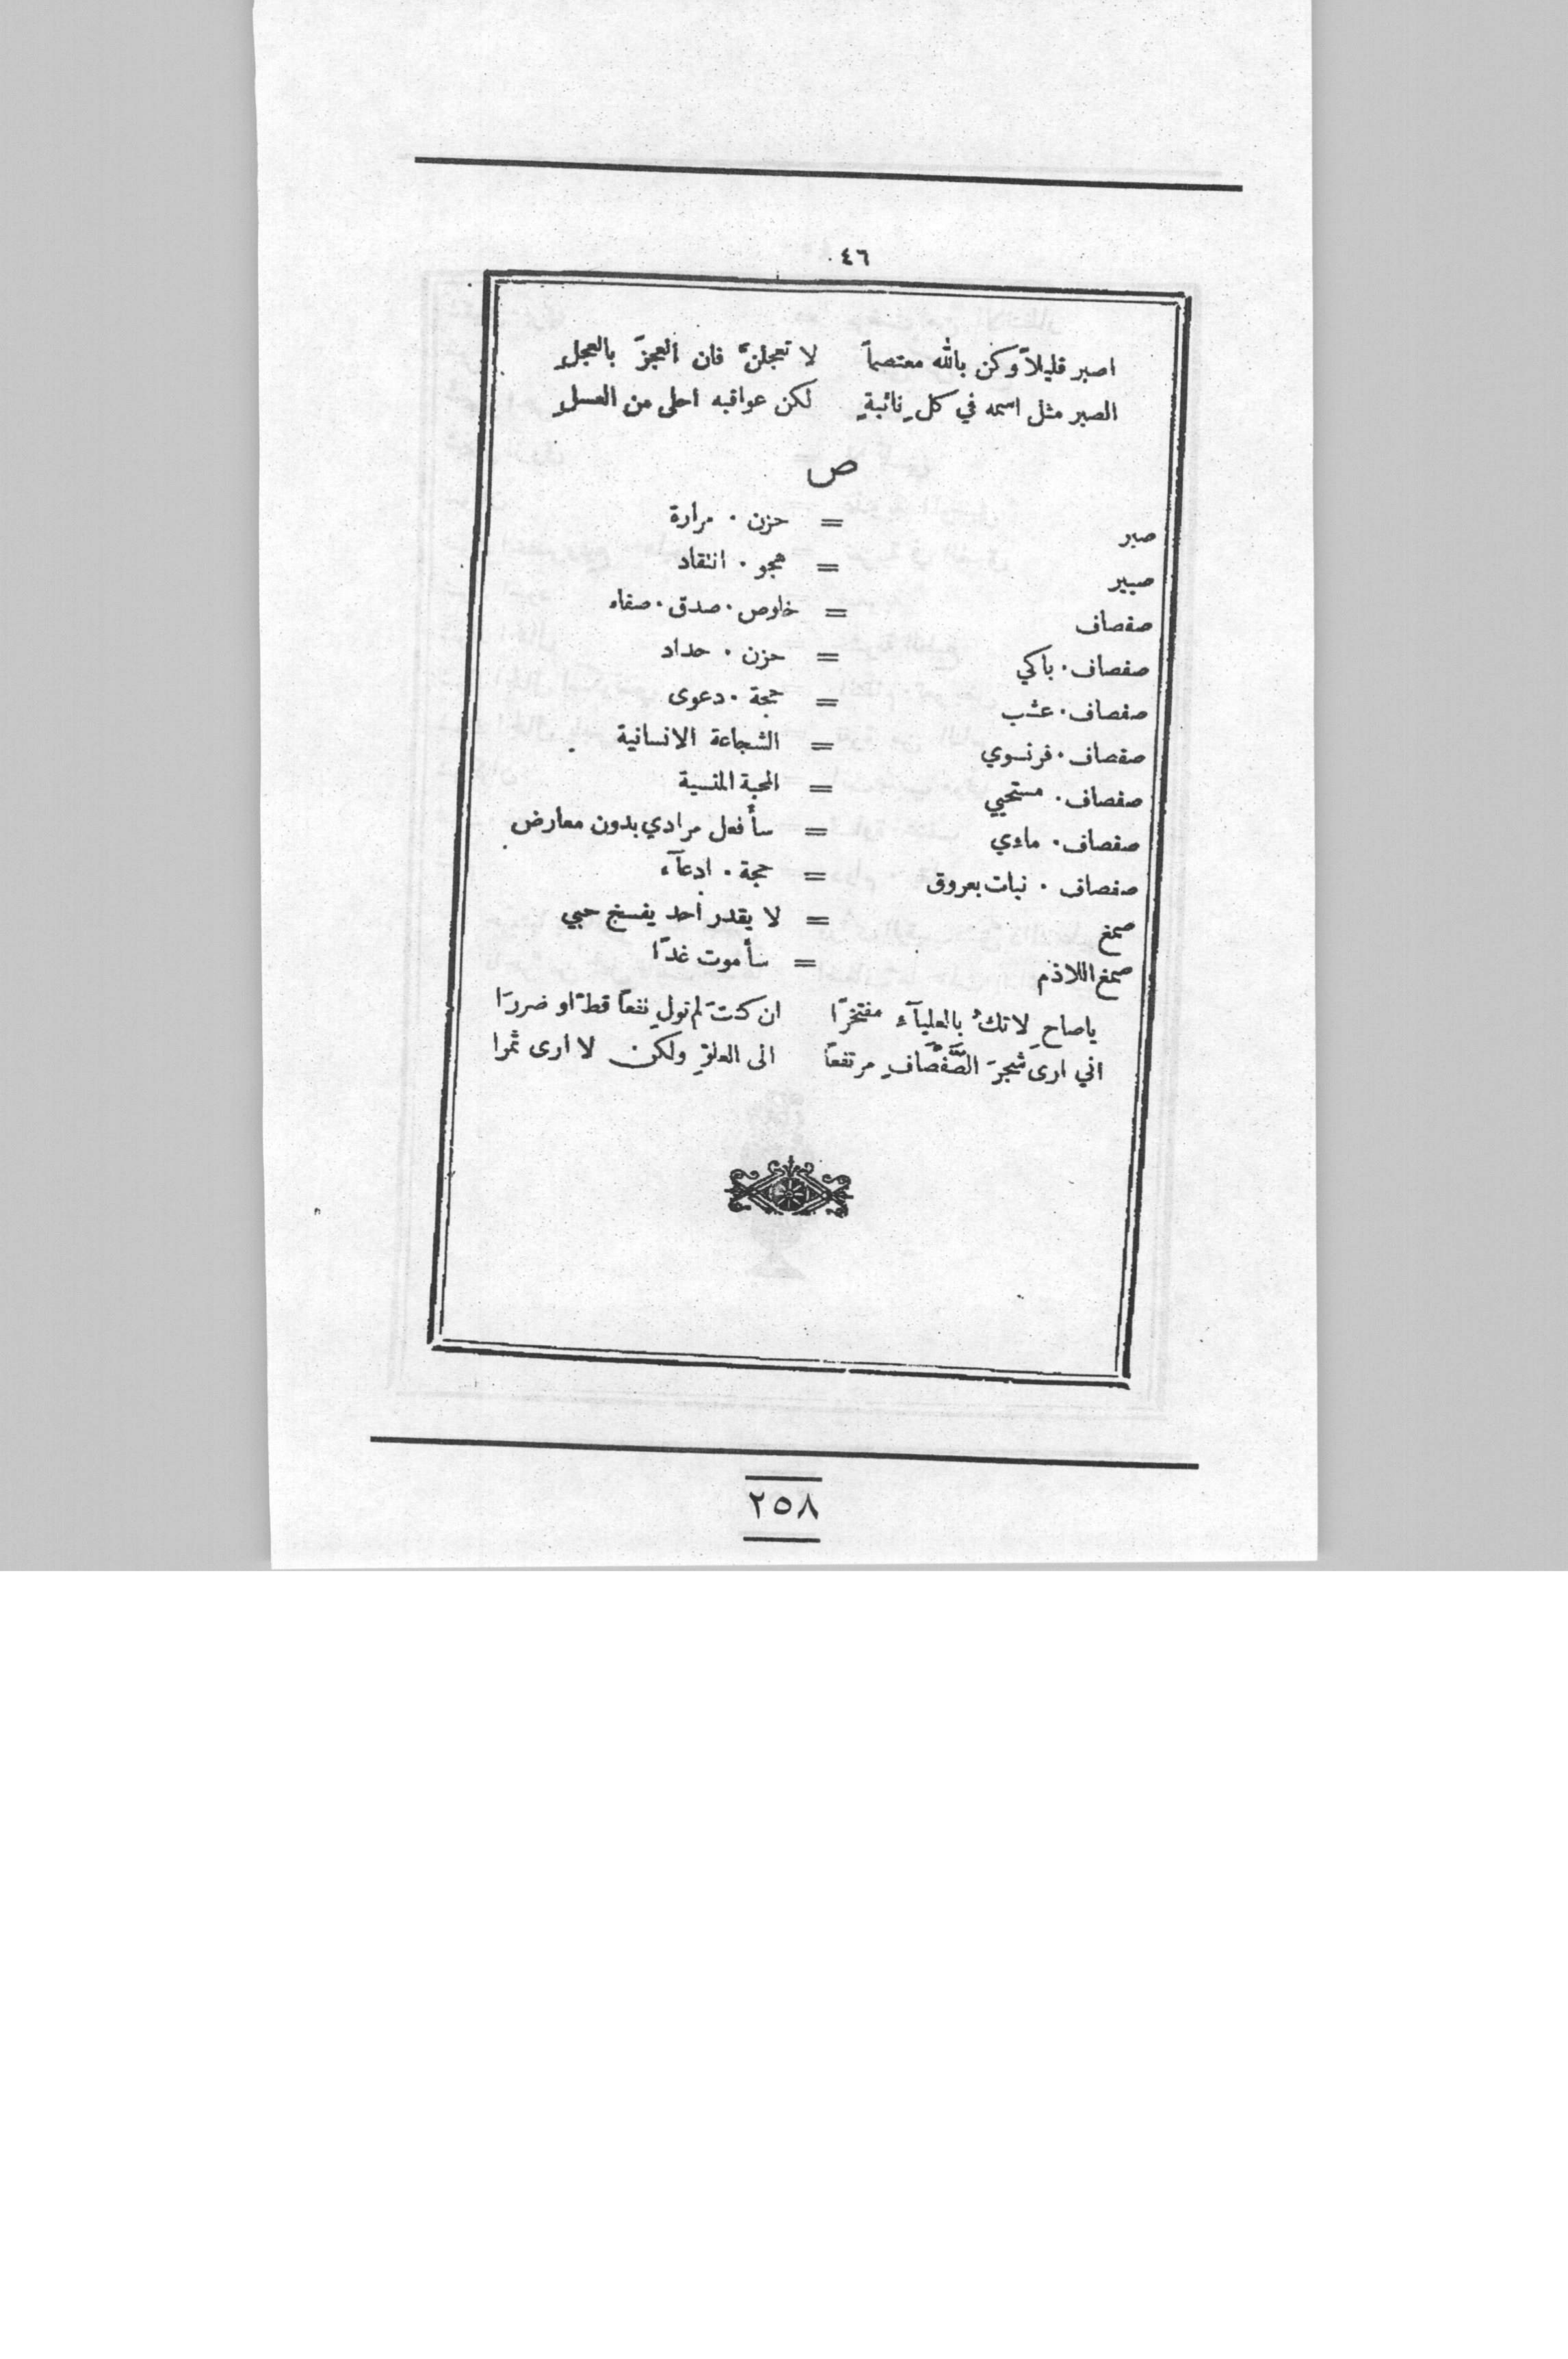 ٤٦
اصبر قليلاً وكن بالله معتصماً لا تعجلنّ فان العجزَ بالعجلِ
الصبر مثل اسمه في كلِ نائبةٍ لكن عواقبه احلى من العسلِ
ص
صبر = حزن . مرارة
صبير = هجو . انتقاد
صفصاف = خلوص . صدق . صفاء
صفصاف . باكي = حزن . حداد
صفصاف . عشب = حجة . دعوى
صفصاف . فرنسوي = الشجاعة الانسانية
صفصاف . مستحيي = المحبة المنسية
صفصاف . مادي = سأفعل مرادي بدون معارض
صفصاف . نبات بعروق = حجة . ادعآء
صمغ = لا يقدر احد يفسخ حبي
صمغ اللاذم = سأموت غدًا
ياصاحِ لاتكُ بالعليآءِ مفتخرًا ان كنتَ لم تولِ نفعاً قطّ او ضررَا
اني ارى شجرَ الصَّفْصَافِ مرتفعاً الى العلوِّ ولكن لا ارى ثمرا
٢٥٨